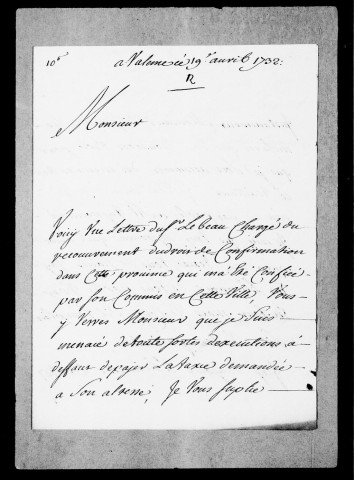 10e
a Valencé 19e avril 1732:
R
Monsieur
Voicy Une Lettre du Sr. Le beau Chargé du
recouvrement du droit de Confirmation
dans Cette province qui m'a Eté Confiée
par Son Commis en Cette Ville, Vous
y Verrez Monsieur que je Suis
menacé de toute Sortes d'executions à
deffaut de payer La taxe demandée
a Son altesse, Je Vous Suplie